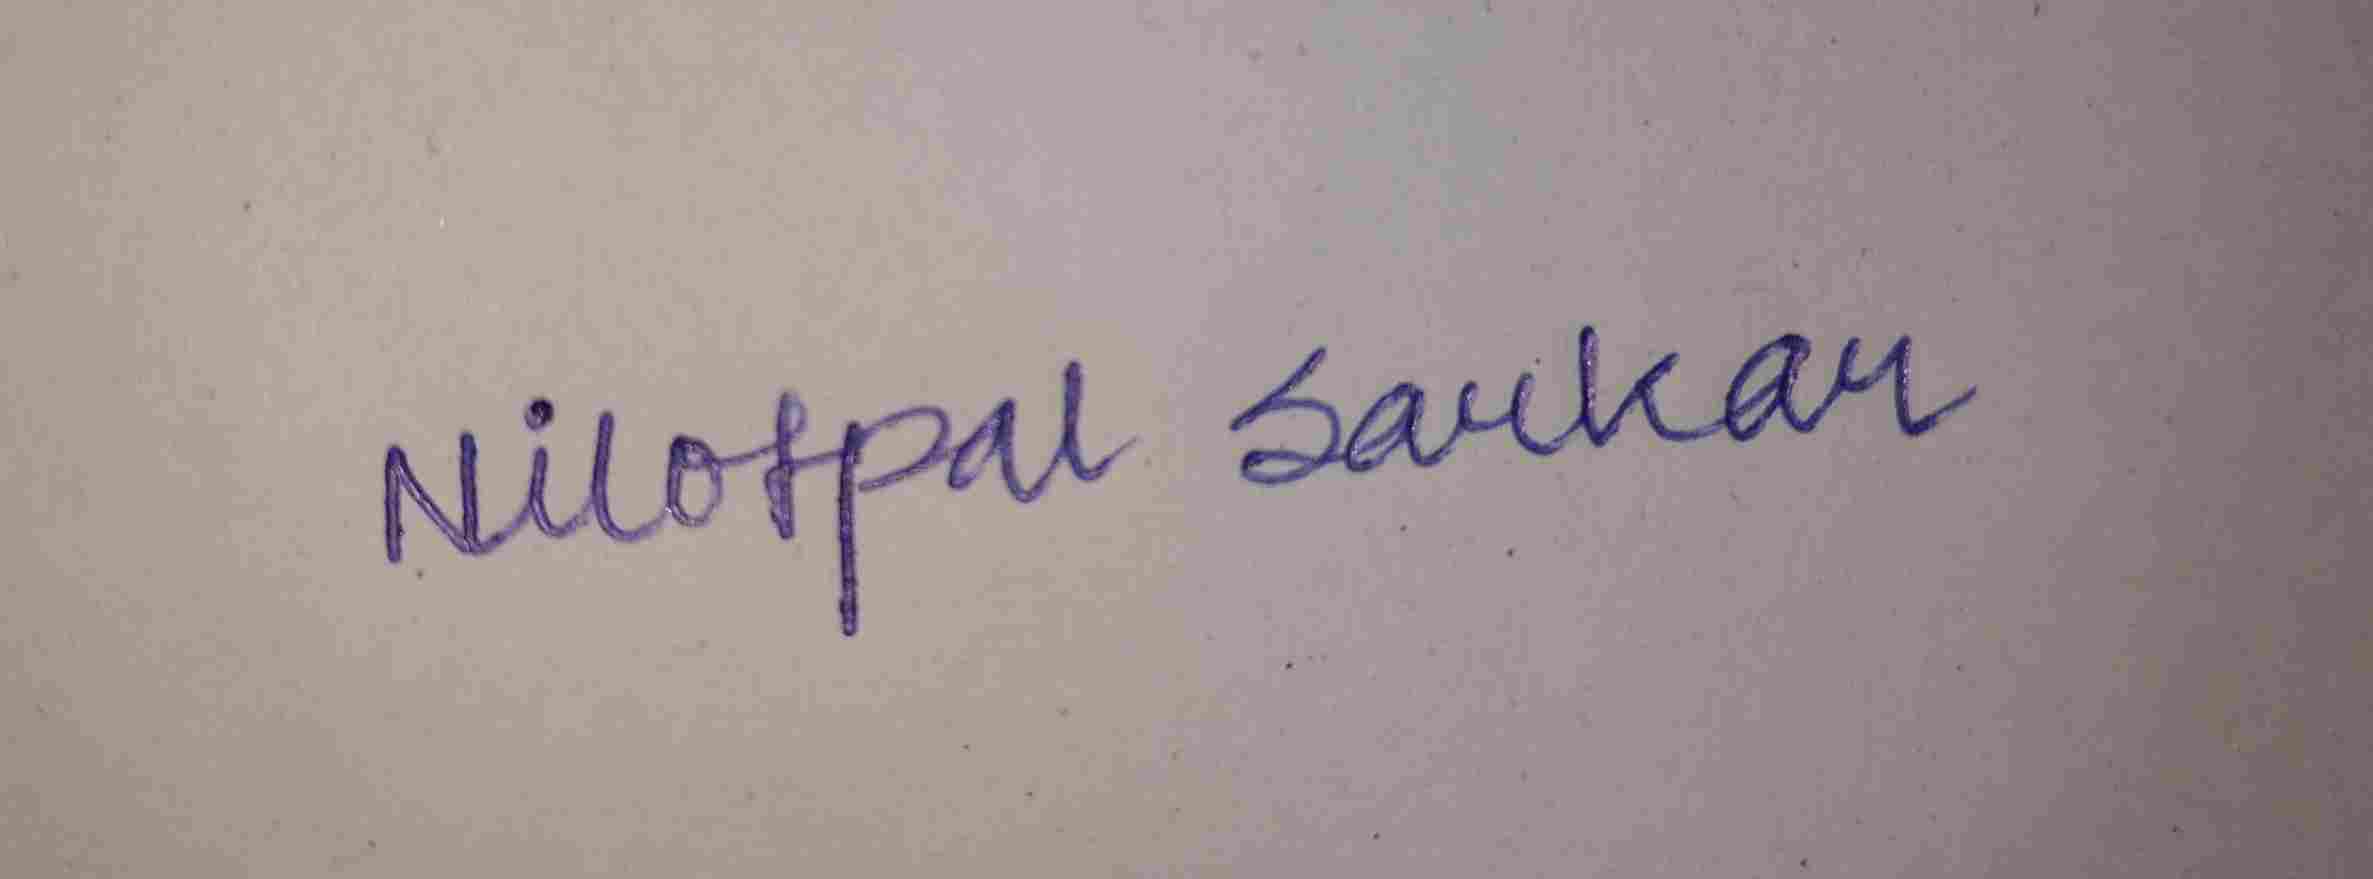 Nilotpal Sarkar